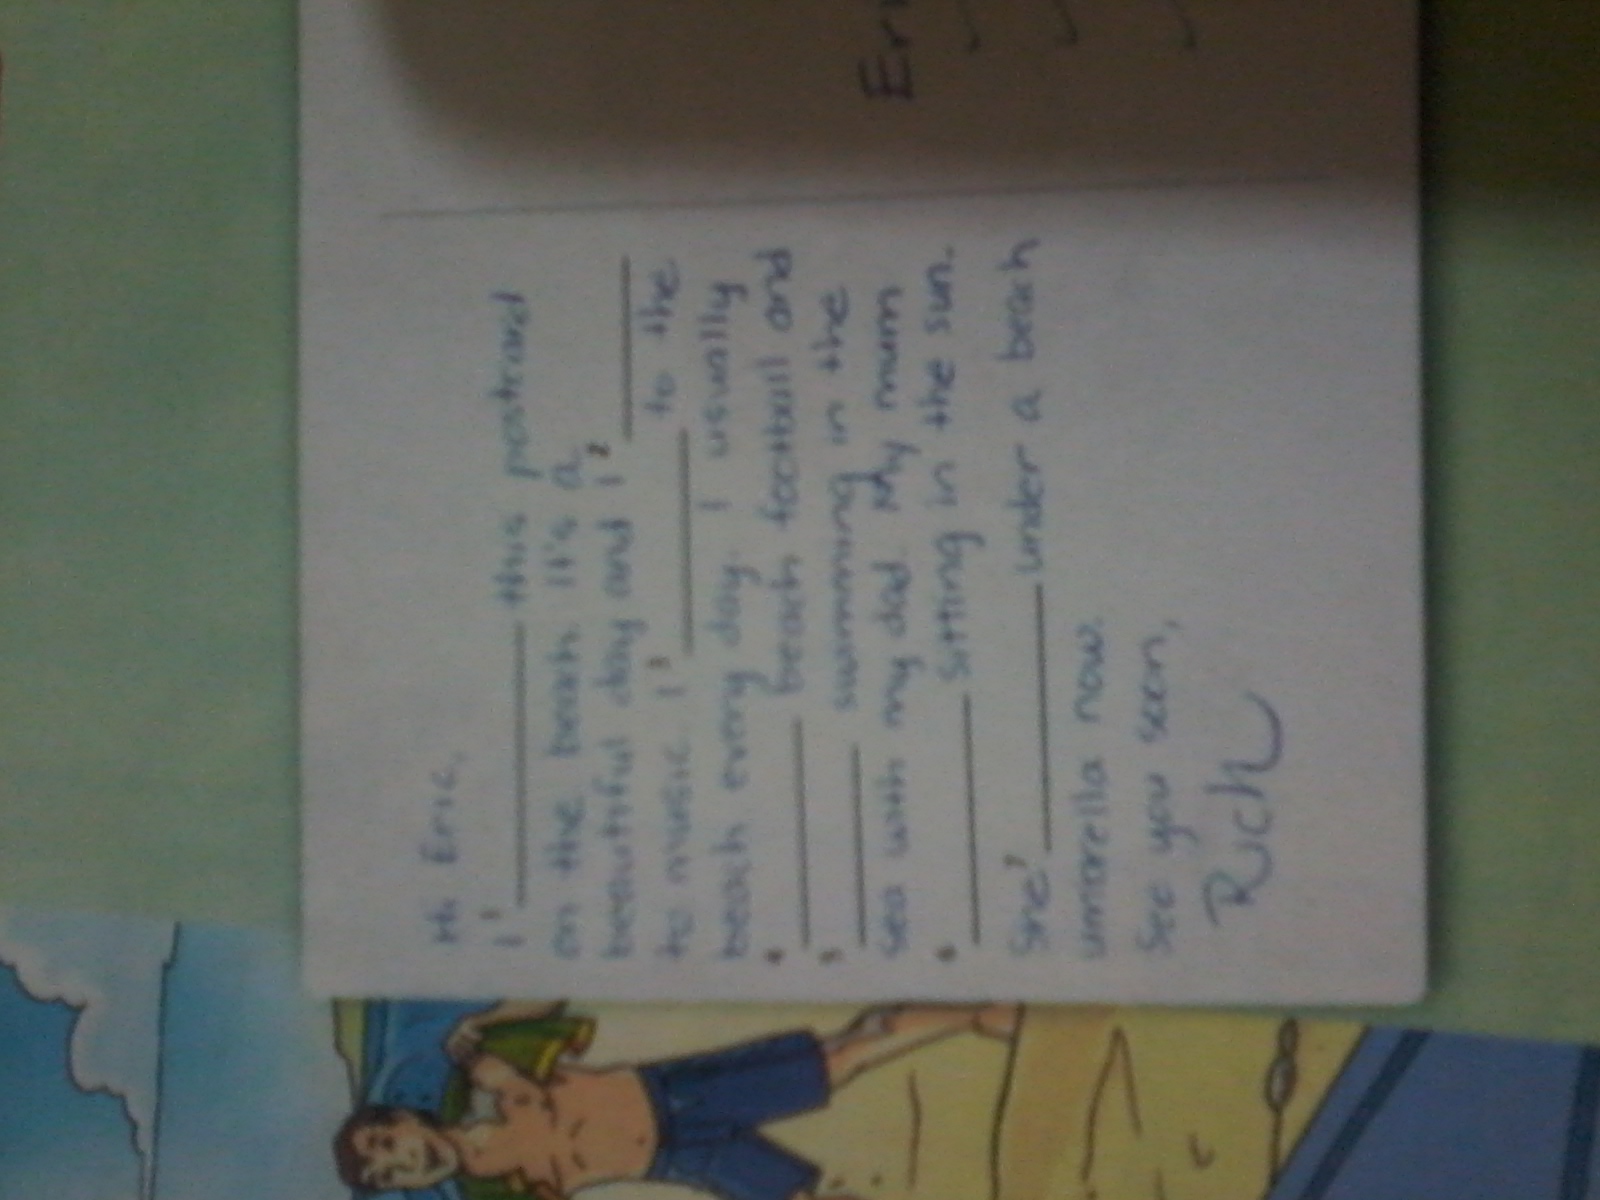 Hi Eric,
I 1 ________ this postcard
on the beach. It's a
beautiful day and I 2 ________
to music. I 3 ________ to the
beach every day. I usually
4 ________ beach football and
5 ________ swimming in the
sea with my dad. My mum
6 ________ sitting in the sun.
She 7 ________ under a beach
umbrella now.
See you soon,
Rich